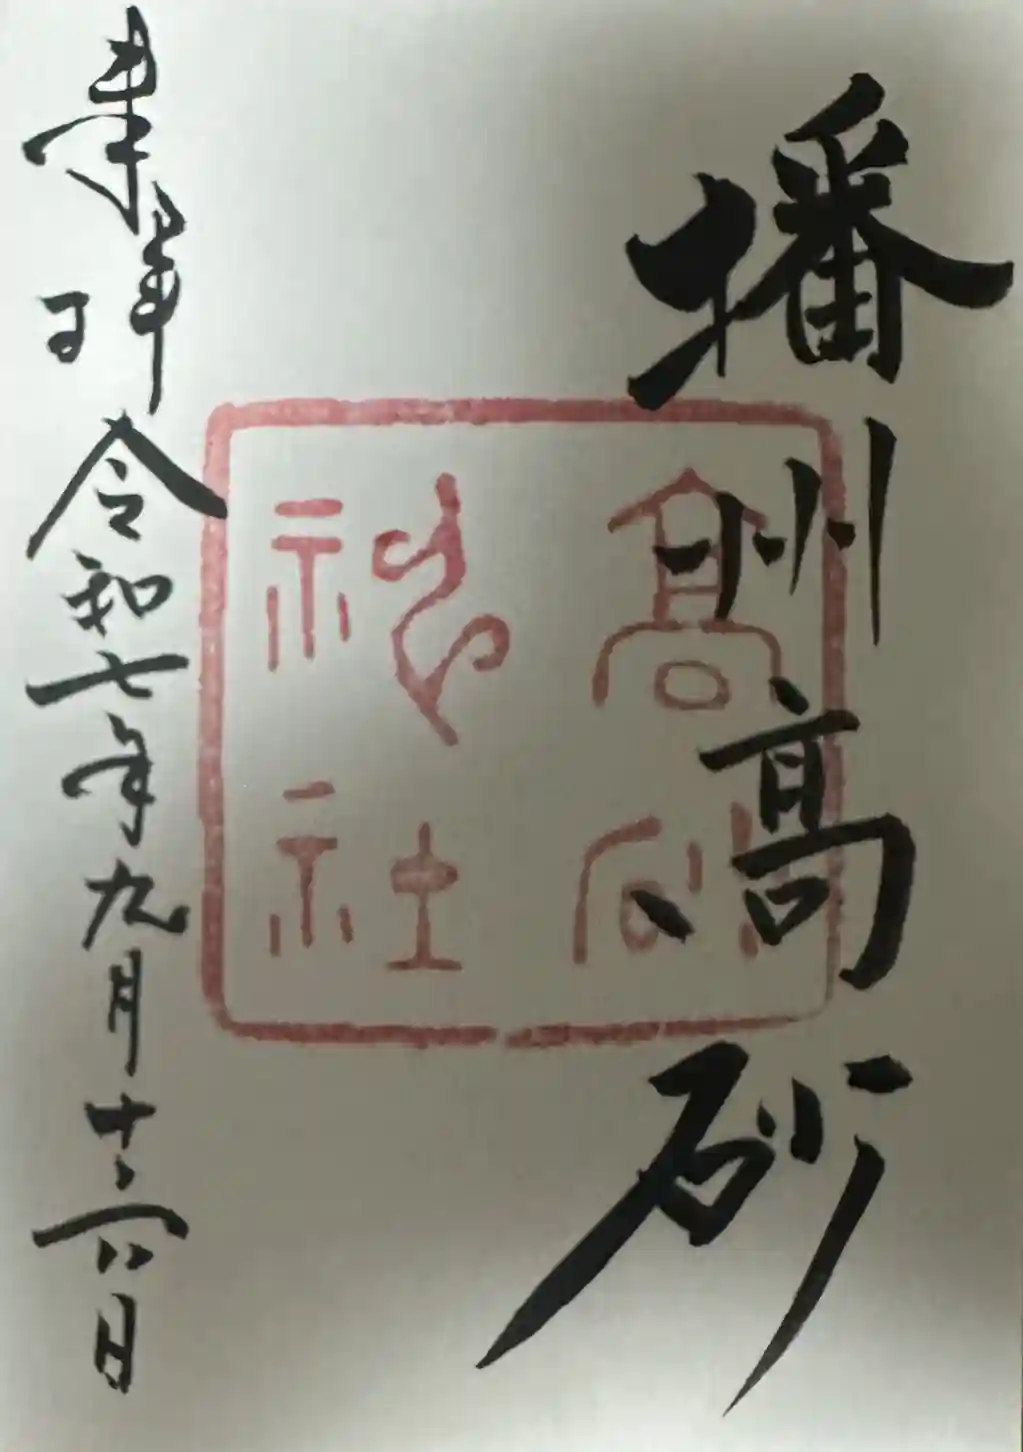 播州高砂
高砂神社
奉拝 令和七年九月十六日